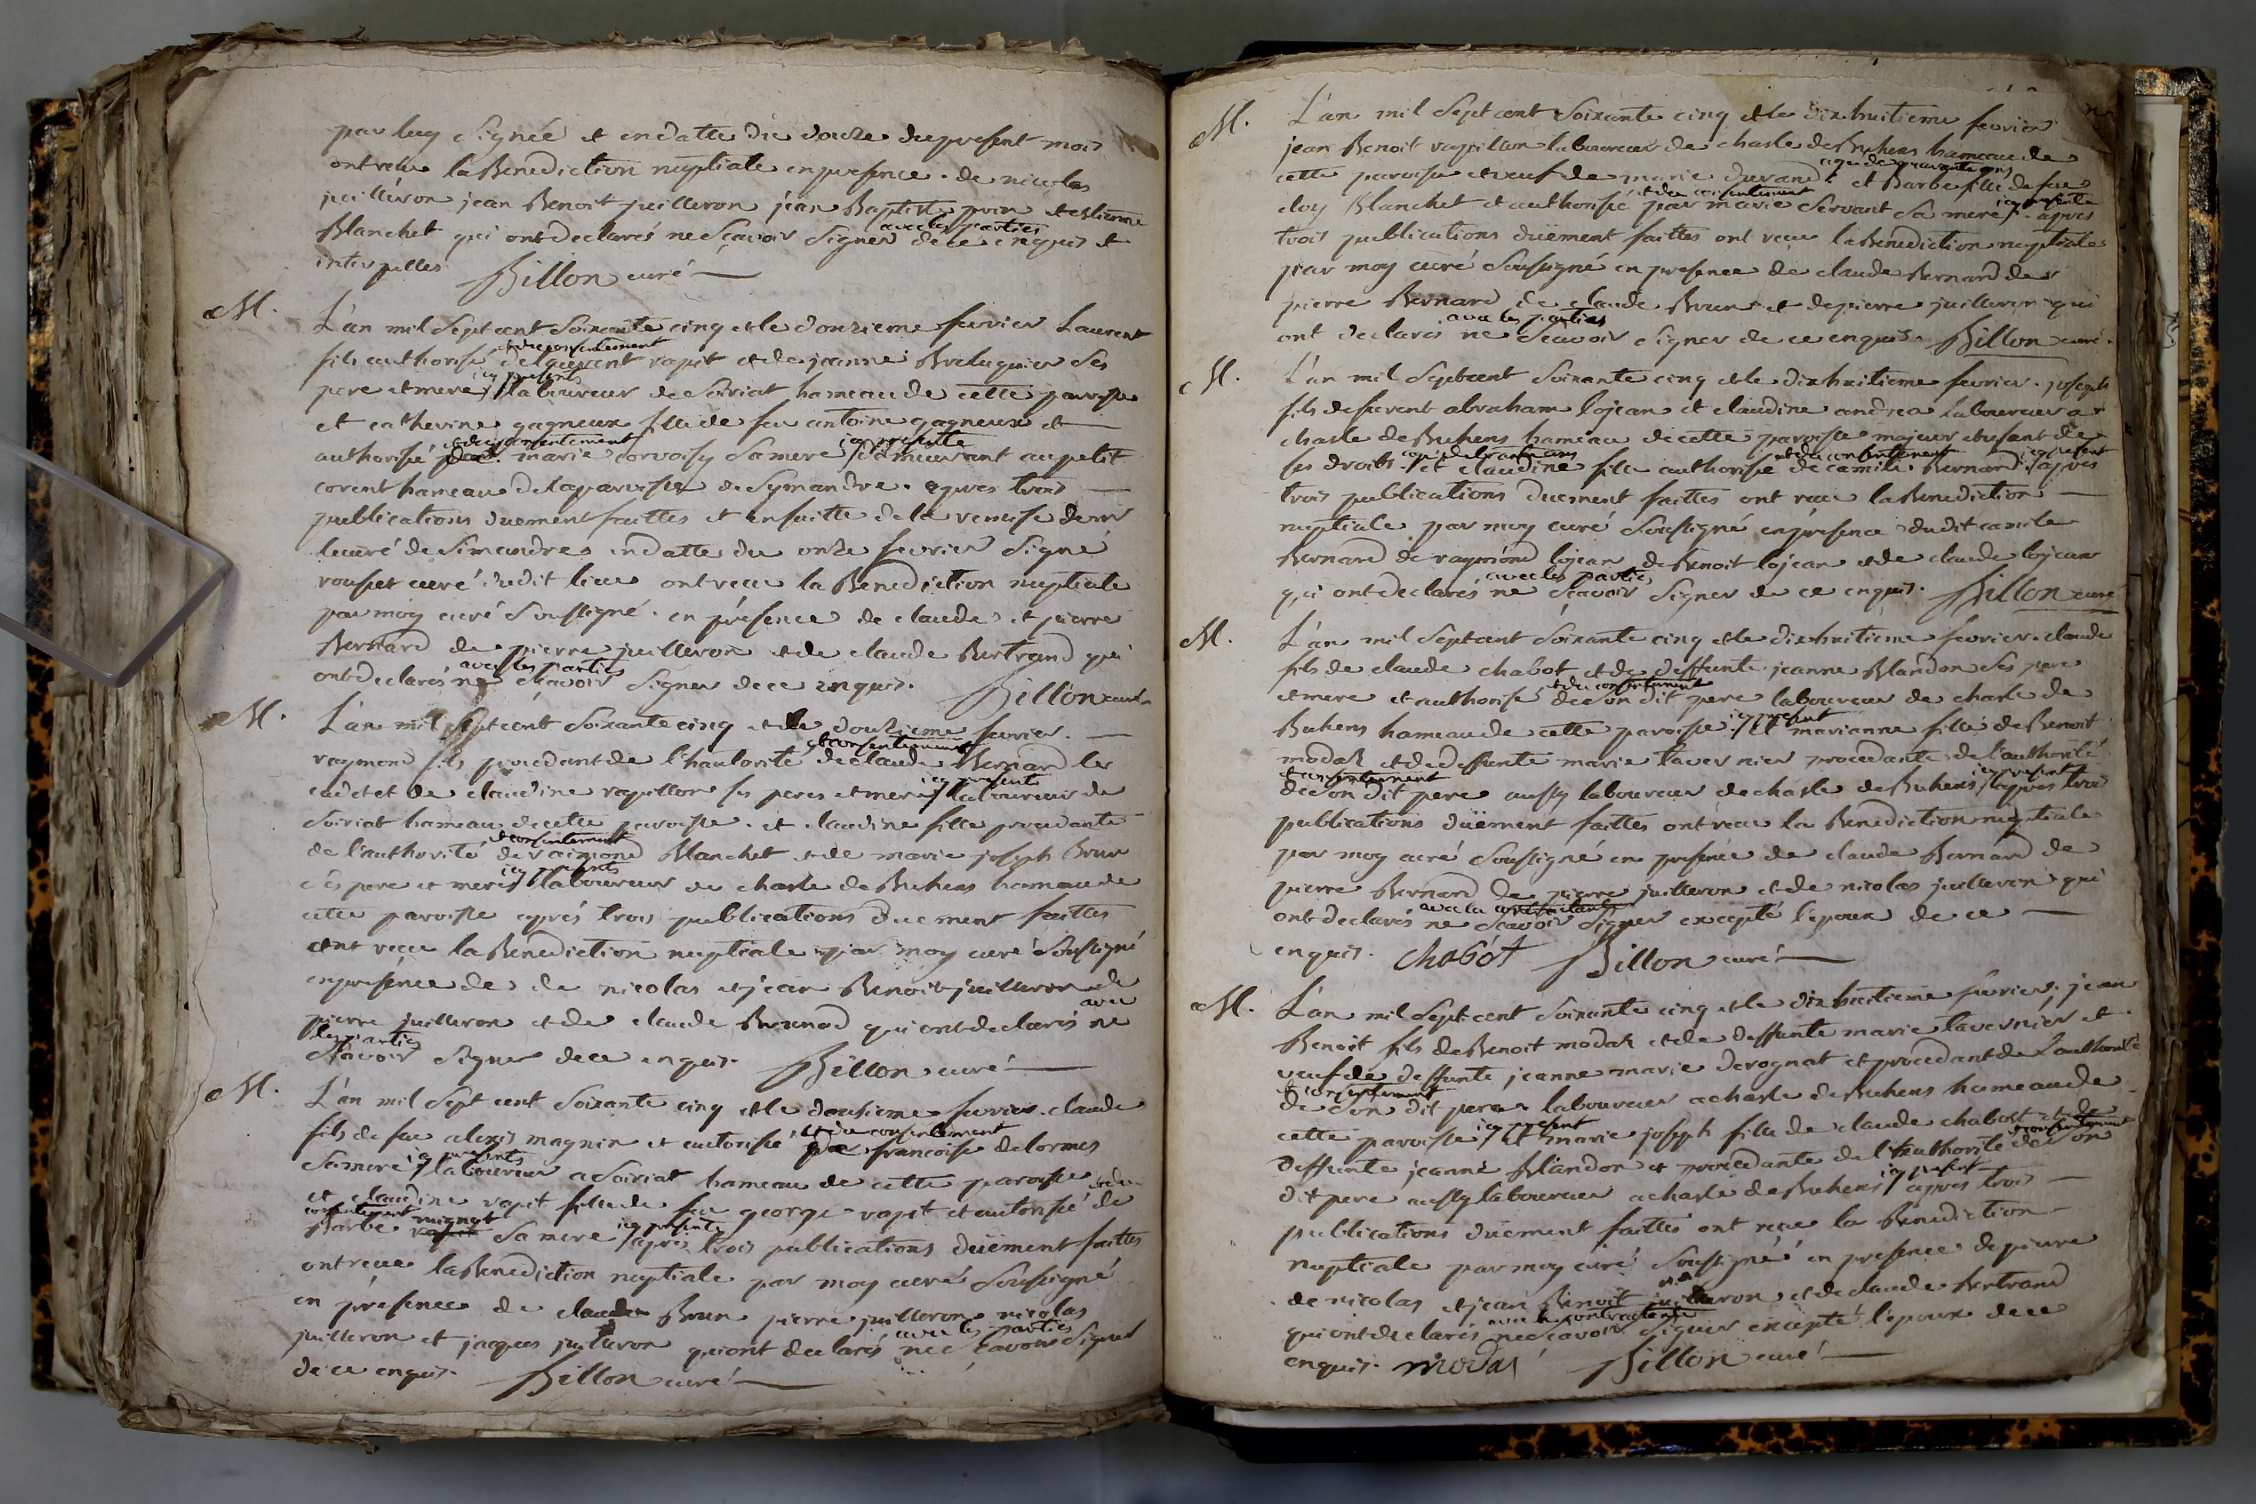 par luy signée et en datte du douze du present mois
ont recu la Benediction nuptiale en presence de nicolas
juilleron jean Benoit juilleron jean Baptiste et estienne
Blanchet qui ont declarés ne sçavoir signer avec les parties de ce enquis et
interpellés Billon curé
M. L'an mil sept cent soixante cinq et le douzieme fevrier Laurent
fils authorisé et du consentement de laurent rapit et de jeanne Breluquier ses
pere et mere icy presents laboureur de soiriat hameau de cette paroisse
et catherine gagneux fille de feu antoine gagneux et
authorisé et du consentement de marie corvoisy sa mere icy presente demeurant au petit
corent hameau de la paroisse de Symandre. apres trois
publications duement faittes et ensuitte de la remise de mr
le curé de Simandres en datte du onze fevrier signé
rousset curé dudit lieu ont recu la Benediction nuptiale
par moy curé soussigné. en présence de claude et pierre
Bernard de pierre juilleron et de claude Bertrand qui
ont declarés ne sçavoir avec les parties signer de ce enquis. Billon curé
M. L'an mil sept cent soixante cinq et le douzieme fevrier.
raymond fils procedant de l'hautorité et consentement de claude Bernard le
cadet et de claudine rapillon ses peres et meres icy presents laboureur de
soiriat hameau de cette paroisse. et claudine fille procedante
de l'authorité et consentement de raimond Blanchet et de marie joseph Brun
ses pere et mere icy presents laboureur de charle de Buhens hameau de
cette paroisse aprés trois publications duement faittes
ont recu la Benediction nuptiale par moy curé soussigné
en présence de de nicolas et jean Benoit juilleron de
pierre juilleron et de claude Bernard qui ont declarés ne avec
les parties sçavoir signer de ce enquis. Billon curé
M. L'an mil sept cent soixante cinq et le douzieme fevrier. claude
fils de feu alexis magnin et autorisé et du consentement de francoise delormes
sa mere icy presents laboureur a soiriat hameau de cette paroisse
et claudine rapit fille de feu george rapit et autorisé et du consentement de
Barbe mignot sa mere icy presente apres trois publications duëment faittes
ont recue la Benediction nuptiale par moy curé soussigné
en présence de claude Brun pierre juilleron nicolas
juilleron et jacques juilleron qui ont declarés ne sçavoir avec les parties signer
de ce enquis. Billon curé
M. L'an mil sept cent soixante cinq et le dixhuitieme fevrier
jean Benoit rapillon laboureur de charle de Buhens hameau de
cette paroisse et veuf de marie durand agé de quarante ans et Barbe fille de feu
eloy Blanchet et authorisé et du consentement par marie servant sa mere icy presente. apres
trois publications duëment faittes ont recu la Benediction nuptiale
par moy curé soussigné en presence de claude Bernard de
pierre Bernard de claude Brun et de pierre juilleron qui
ont declarés ne sçavoir avec les parties signer de ce enquis. Billon curé.
M. L'an mil sept cent soixante cinq et le dixhuitieme fevrier. joseph
fils de furent abraham lojean et claudine andrea laboureur a
charle de Buhens hameau de cette paroisse majeur et usant de
ses droits agé de trente ans et claudine fille authorisé et du consentement de camile Bernard icy present apres
trois publications duement faittes ont recu la Benediction
nuptiale par moy curé soussigné en présence dudit camile
Bernard de raymond lojean de Benoit lojean et de claude lojean
qui ont declarés ne sçavoir avec les parties signer de ce enquis. Billon curé
M. L'an mil sept cent soixante cinq et le dixhuitieme février. claude
fils de claude chabot et de deffunte jeanne Blandon ses pere
et mere et authorisé et du consentement de son dit pere laboureur de charle de
Buhens hameau de cette paroisse icy present et marianne fille de Benoit
modas et de deffunte marie tavernier procedante de l'authorité
et consentement de son dit pere aussy laboureur de charle de Buhens icy present apres trois
publications duëment faittes ont recu la Benediction nuptiale
par moy curé soussigné en presence de claude Bernard de
pierre Bernard de pierre juilleron et de nicolas juilleron qui
ont declarés ne sçavoir avec les contractants signer excepté l'epoux de ce
enquis. chabót Billon curé
M. L'an mil sept cent soixante cinq et le dixhuitieme fevrier. jean
Benoit fils de Benoit modas et de deffunte marie tavernier et
veuf de deffunte jeanne marie derognat et procedant de l'authorité
et consentement de son dit pere laboureur a charle de Buhens hameau de
cette paroisse icy present et marie joseph fille de claude chabot et de
deffunte jeanne Blandon et procedante de l'authorité et consentement de son
dit pere aussy laboureur a charle de Buhens icy present apres trois
publications duëment faittes ont reçue la Benediction
nuptiale par moy curé soussigné en presence de pierre
de nicolas et jean Benoit juilleron et de claude Bertrand
qui ont declarés ne sçavoir avec la contractante signer excepté l'epoux de ce
enquis. modas Billon curé